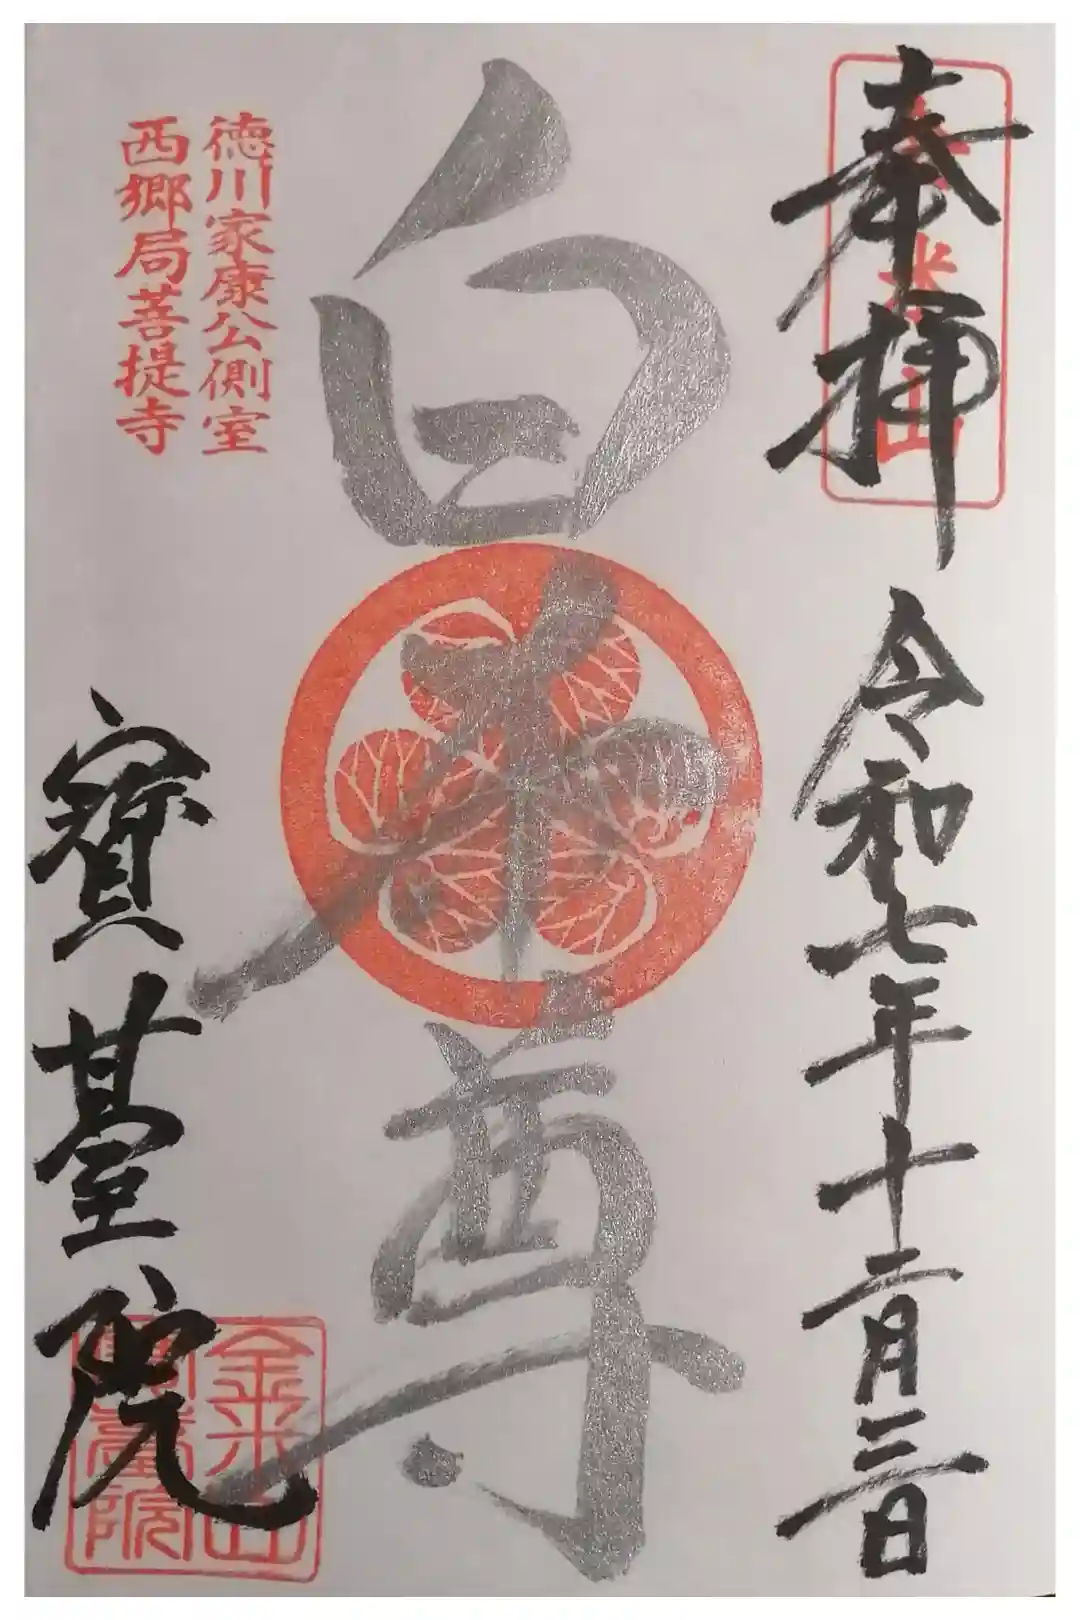 奉拝
金米山
令和七年十二月三日
白本尊
徳川家康公側室
西郷局菩提寺
寳臺院
金米山
寳臺院